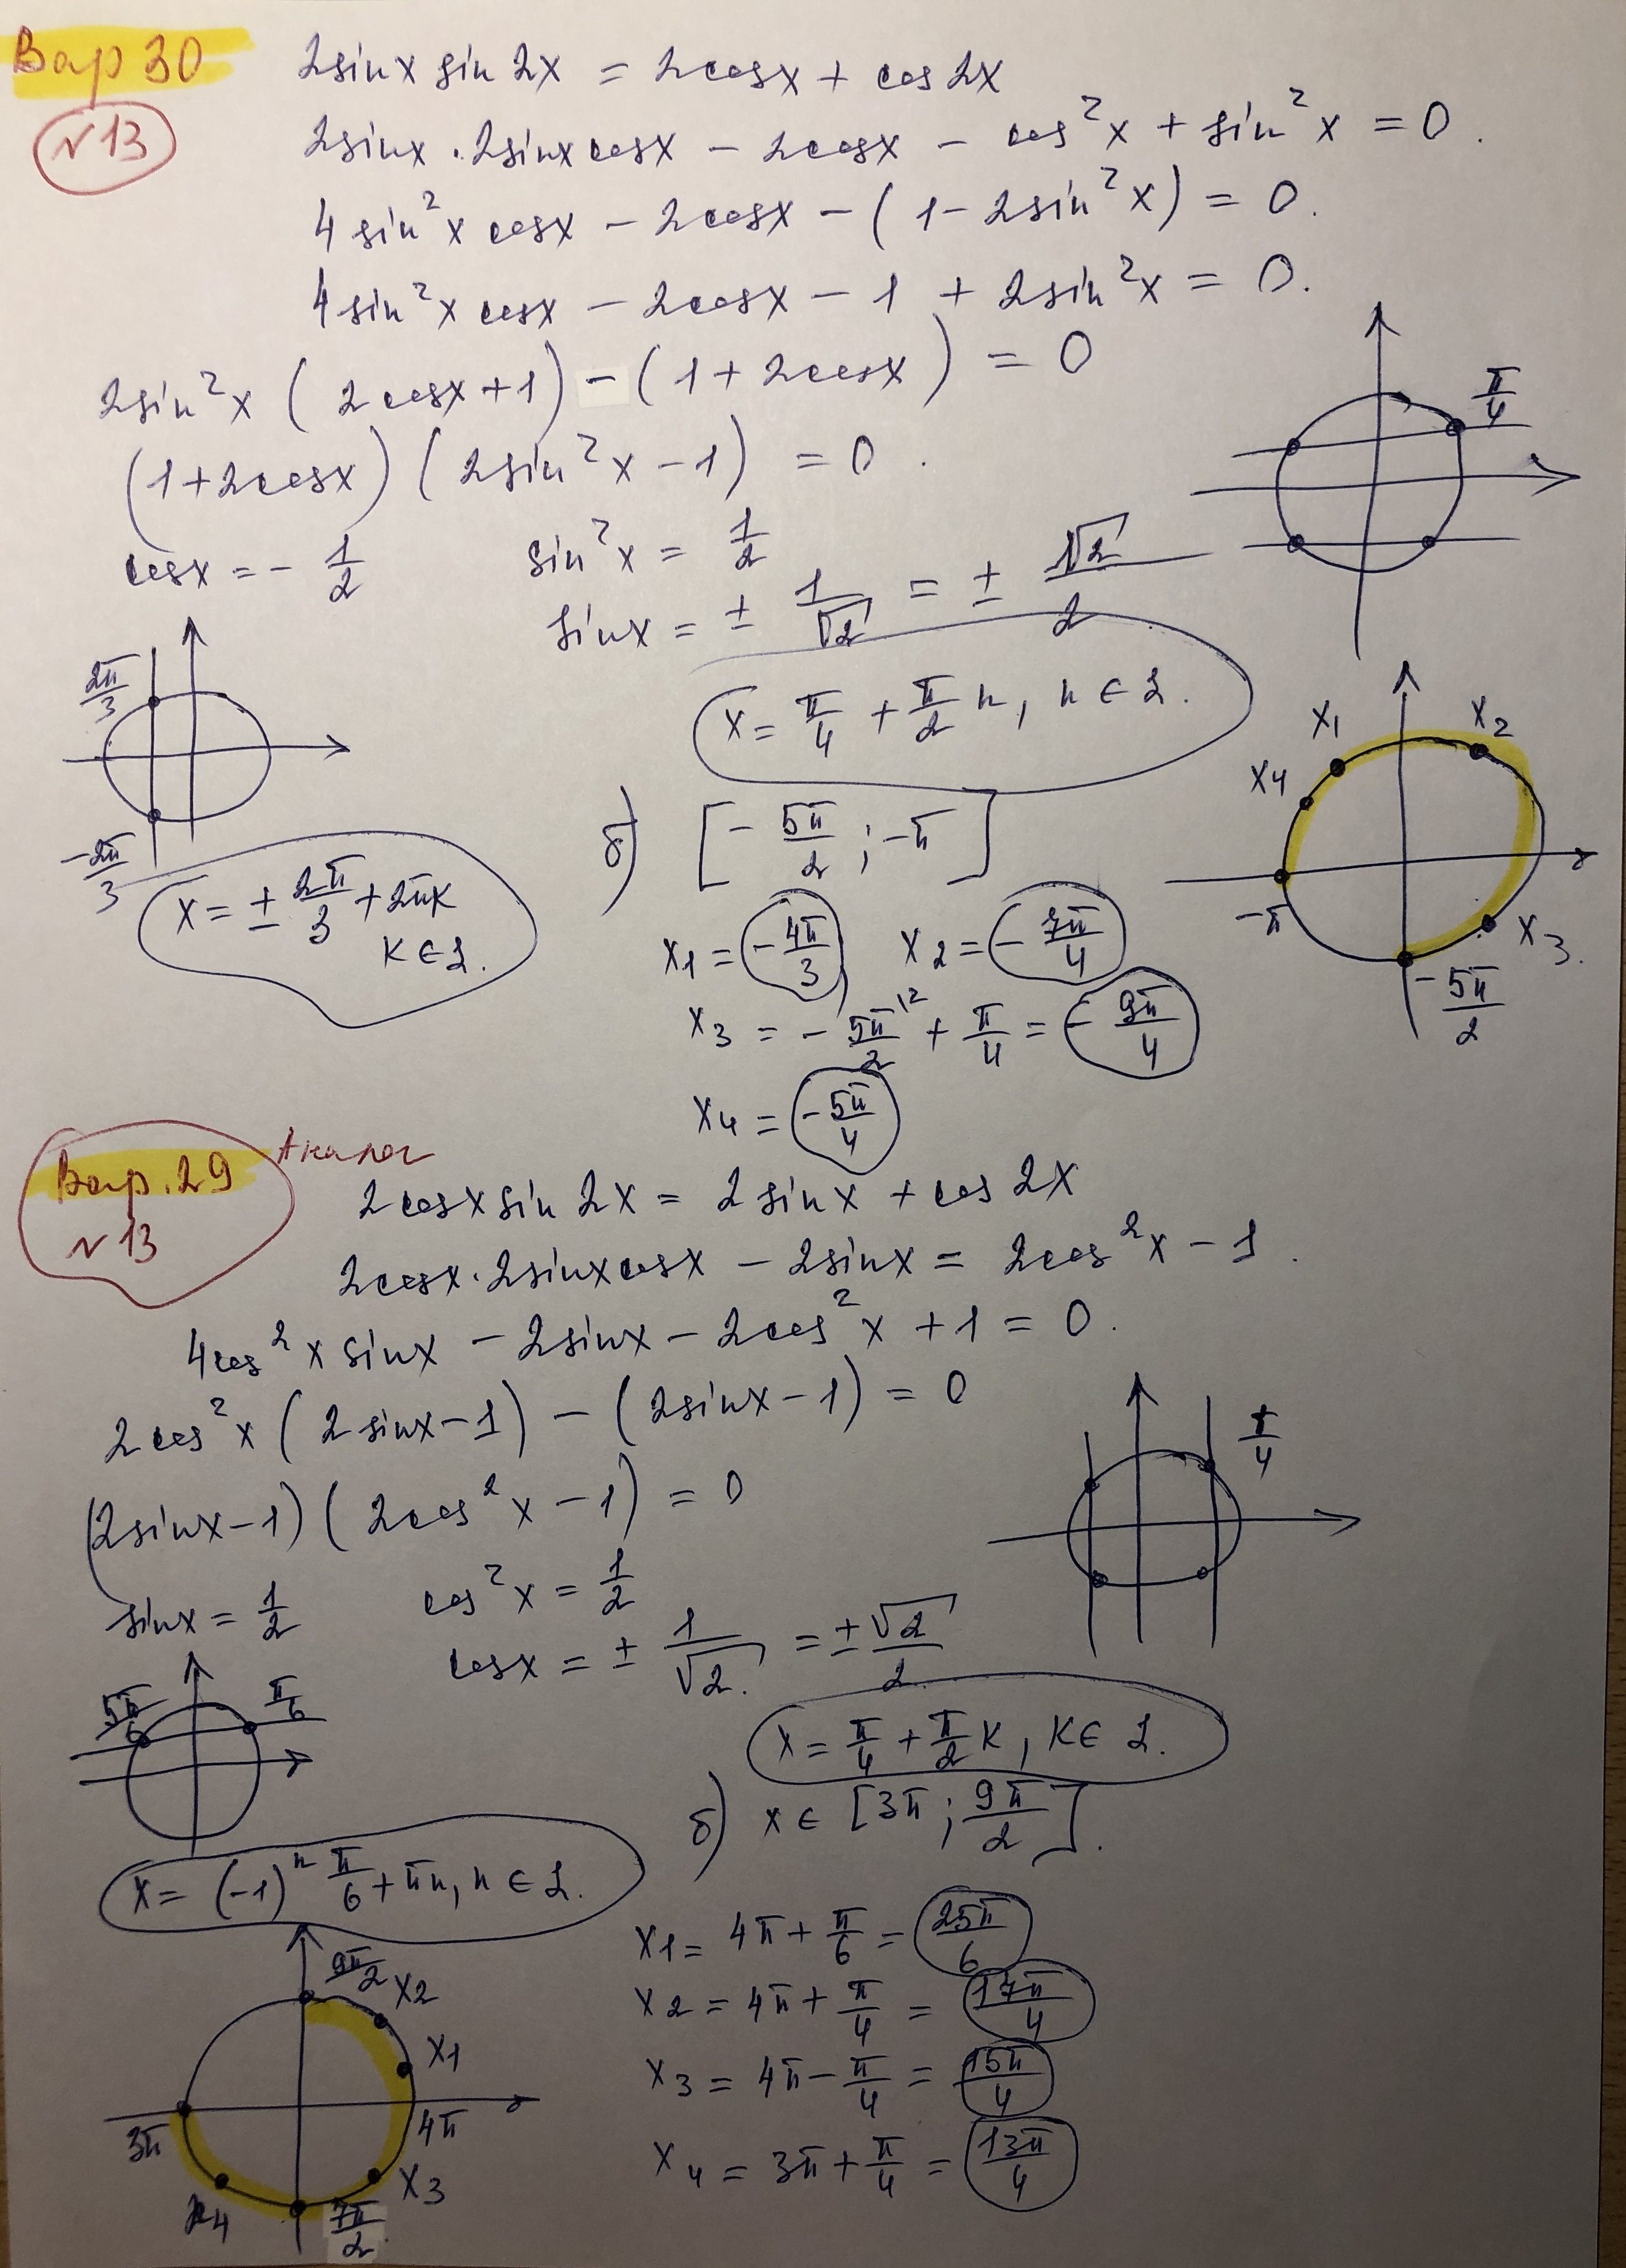 Вар 30
№ 13
2sinx sin 2x = 2cosx + cos 2x
2sinx · 2sinx cosx − 2cosx − cos²x + sin²x = 0.
4sin²x cosx − 2cosx − (1 − 2sin²x) = 0.
4sin²x cosx − 2cosx − 1 + 2sin²x = 0.
2sin²x (2cosx + 1) − (1 + 2cosx) = 0
(1 + 2cosx)(2sin²x − 1) = 0.
π/4
cosx = − 1/2
sin²x = 1/2
sinx = ± 1/√2 = ± √2/2
2π/3
−2π/3
x = π/4 + π/2 n, n ∈ Z.
x = ± 2π/3 + 2πk
k ∈ Z.
б) [− 5π/2 ; −π]
x1 x2
x4
−π
x3.
− 5π/2
x1 = − 4π/3 x2 = − 7π/4
x3 = − 5π/2 \2 + π/4 = − 9π/4
x4 = − 5π/4
Вар. 29
№ 13
Аналог
2cosx sin 2x = 2sinx + cos 2x
2cosx · 2sinx cosx − 2sinx = 2cos²x − 1.
4cos²x sinx − 2sinx − 2cos²x + 1 = 0.
2cos²x (2sinx − 1) − (2sinx − 1) = 0
(2sinx − 1)(2cos²x − 1) = 0
π/4
sinx = 1/2
cos²x = 1/2
cosx = ± 1/√2. = ± √2/2
5π/6 π/6
x = π/4 + π/2 k, k ∈ Z.
x = (−1)ⁿ π/6 + πn, n ∈ Z.
б) x ∈ [3π ; 9π/2].
9π/2 x2
x1
3π 4π
x4 x3
7π/2
x1 = 4π + π/6 = 25π/6
x2 = 4π + π/4 = 17π/4
x3 = 4π − π/4 = 15π/4
x4 = 3π + π/4 = 13π/4